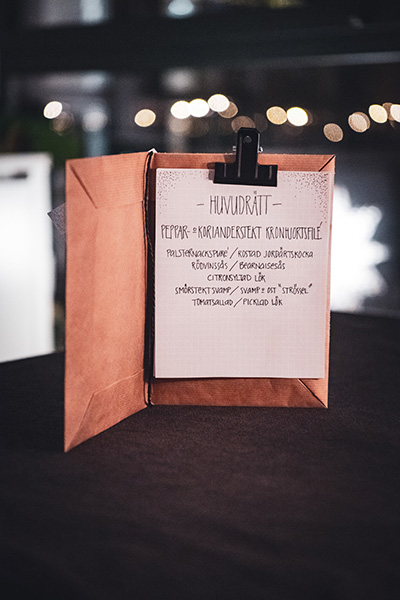 - HUVUDRÄTT -
PEPPAR- & KORIANDERSTEKT KRONHJORTSFILÉ
PALSTERNACKSPURÉ / ROSTAD JORDÄRTSKOCKA
RÖDVINSSÅS / BEARNAISESÅS
CITRONSYLTAD LÖK
SMÖRSTEKT SVAMP / SVAMP & OST "STRÖSSEL"
TOMATSALLAD / PICKLAD LÖK